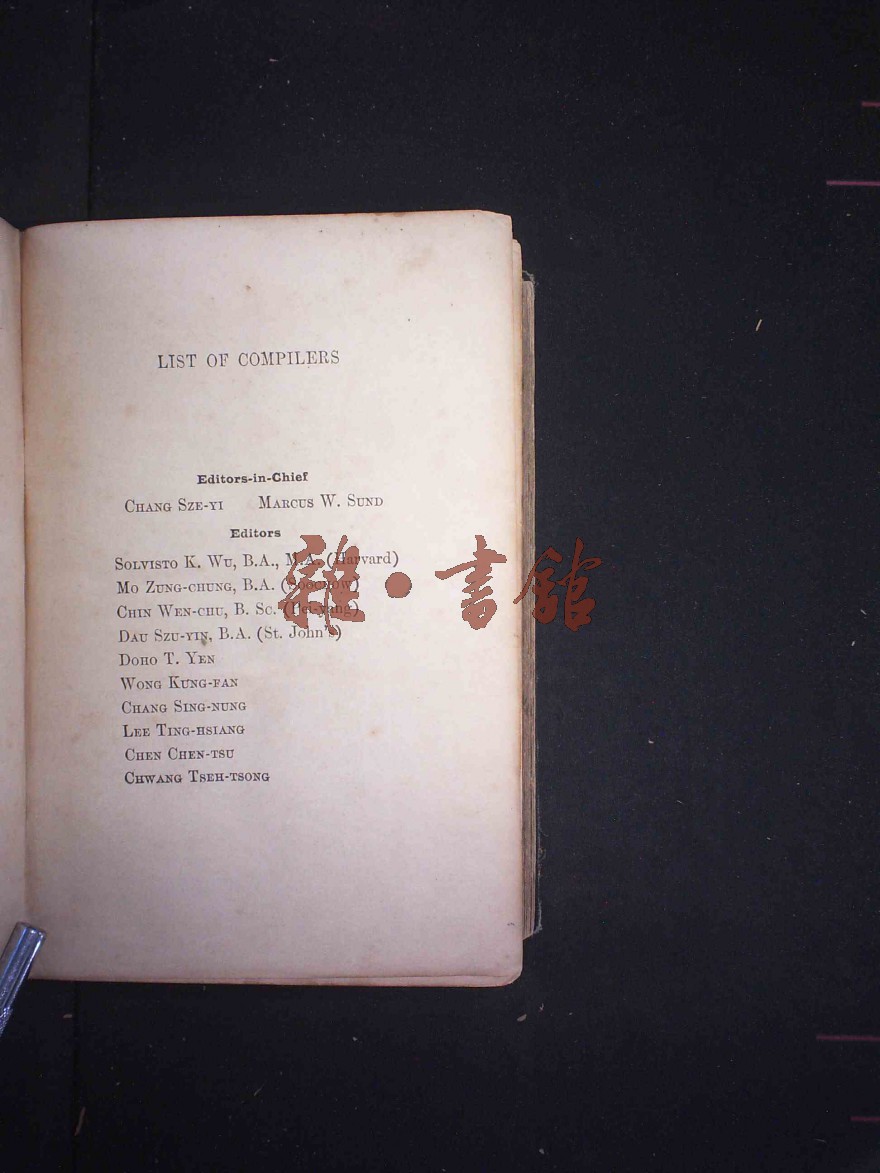 LIST OF COMPILERS
Editors-in-Chief
CHANG SZE-YI MARCUS W. SUND
Editors
SOLVISTO K. WU, B.A., M.A. (Harvard)
MO ZUNG-CHUNG, B.A. (Soochow)
CHIN WEN-CHU, B. Sc. (Pei-yang)
DAU SZU-YIN, B.A. (St. John's)
DOHO T. YEN
WONG KUNG-FAN
CHANG SING-NUNG
LEE TING-HSIANG
CHEN CHEN-TSU
CHWANG TSEH-TSONG
雜·書館